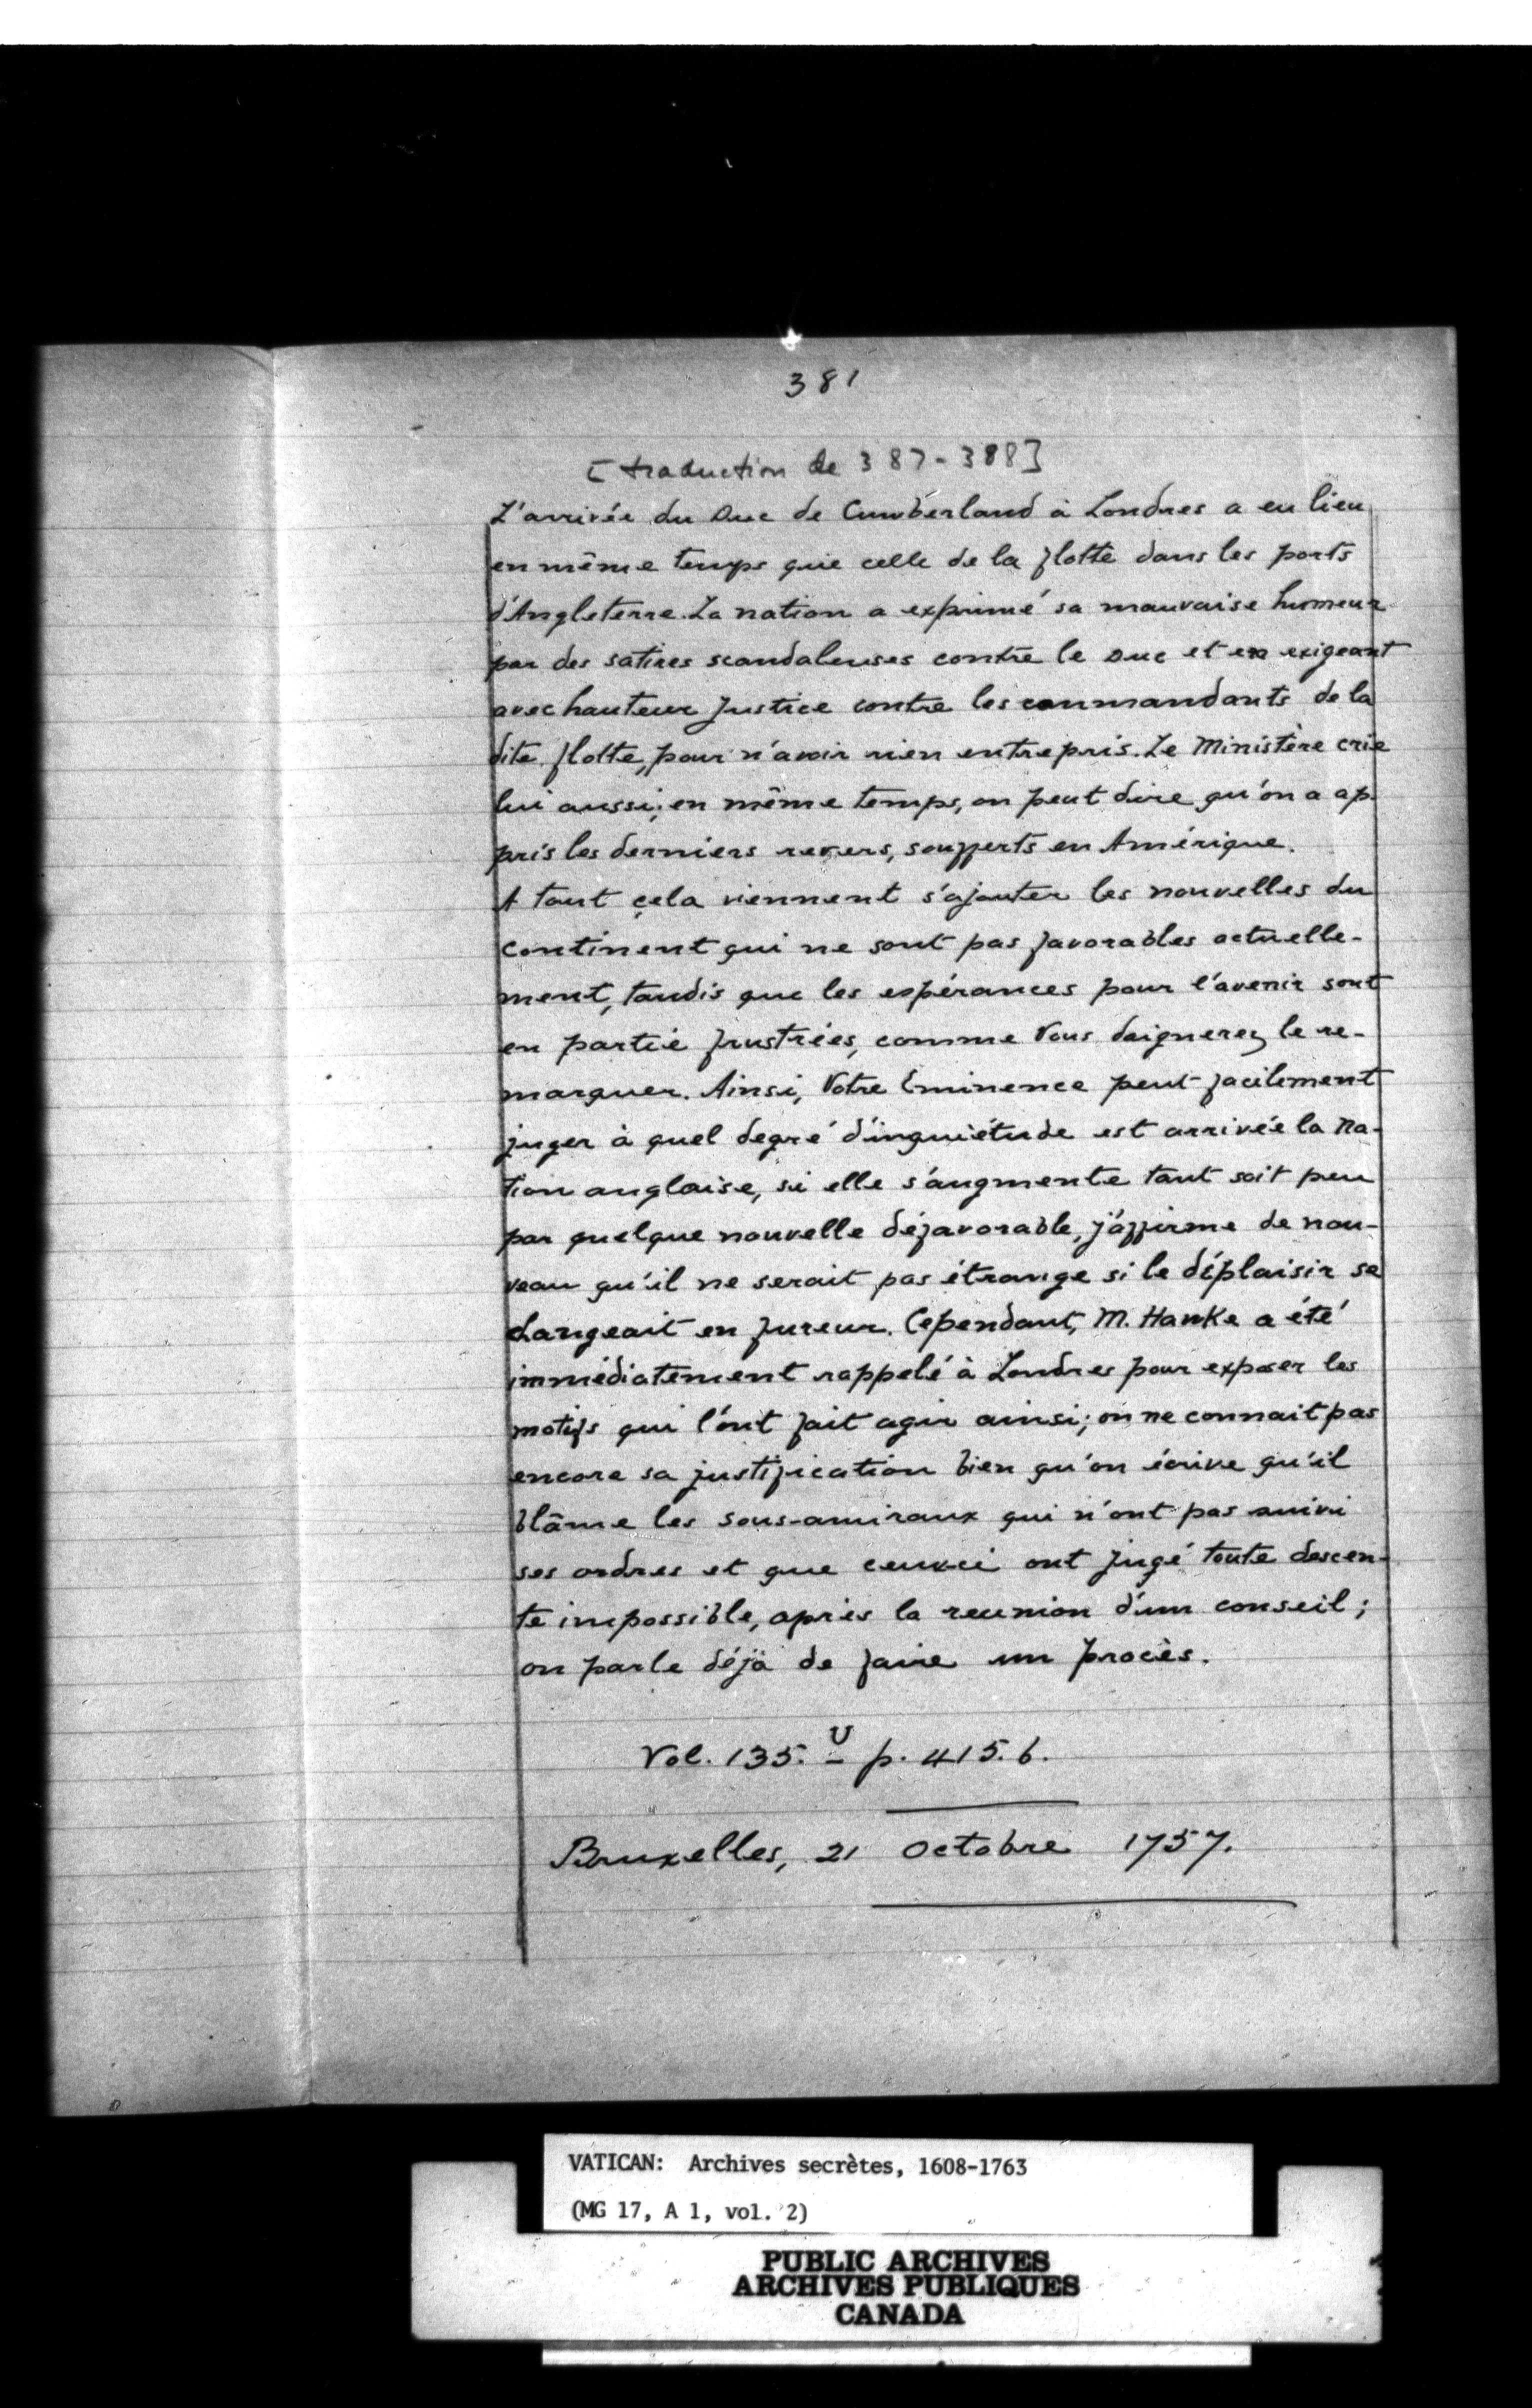 381
[traduction de 387-388]
L'arrivée du Duc de Cumberland à Londres a eu lieu
en même temps que celle de la flotte dans les ports
d'Angleterre. La nation a exprimé sa mauvaise humeur
par des satires scandaleuses contre le Duc et en exigeant
avec hauteur justice contre les commandants de la
dite flotte, pour n'avoir rien entrepris. Le Ministère crie
lui aussi; en même temps, on peut dire qu'on a ap-
pris les derniers revers, soufferts en Amérique.
A tout cela viennent s'ajouter les nouvelles du
continent qui ne sont pas favorables actuelle-
ment, tandis que les espérances pour l'avenir sont
en partie frustrées, comme Vous daignerez le re-
marquer. Ainsi, Votre Eminence peut facilement
juger à quel degré d'inquiétude est arrivée la na-
tion anglaise, si elle s'augmente tant soit peu
par quelque nouvelle défavorable, j'affirme de nou-
veau qu'il ne serait pas étrange si le déplaisir se
changeait en fureur. Cependant, M. Hawke a été
immédiatement rappelé à Londres pour exposer les
motifs qui l'ont fait agir ainsi; on ne connait pas
encore sa justification bien qu'on écrive qu'il
blâme les sous-amiraux qui n'ont pas suivi
ses ordres et que ceux-ci ont jugé toute descen-
te impossible, après la reunion d'un conseil;
on parle déjà de faire un procès.
Vol. 135. U - p. 415. b.
Bruxelles, 21 Octobre 1757.
VATICAN: Archives secrètes, 1608-1763
(MG 17, A 1, vol. 2)
PUBLIC ARCHIVES
ARCHIVES PUBLIQUES
CANADA